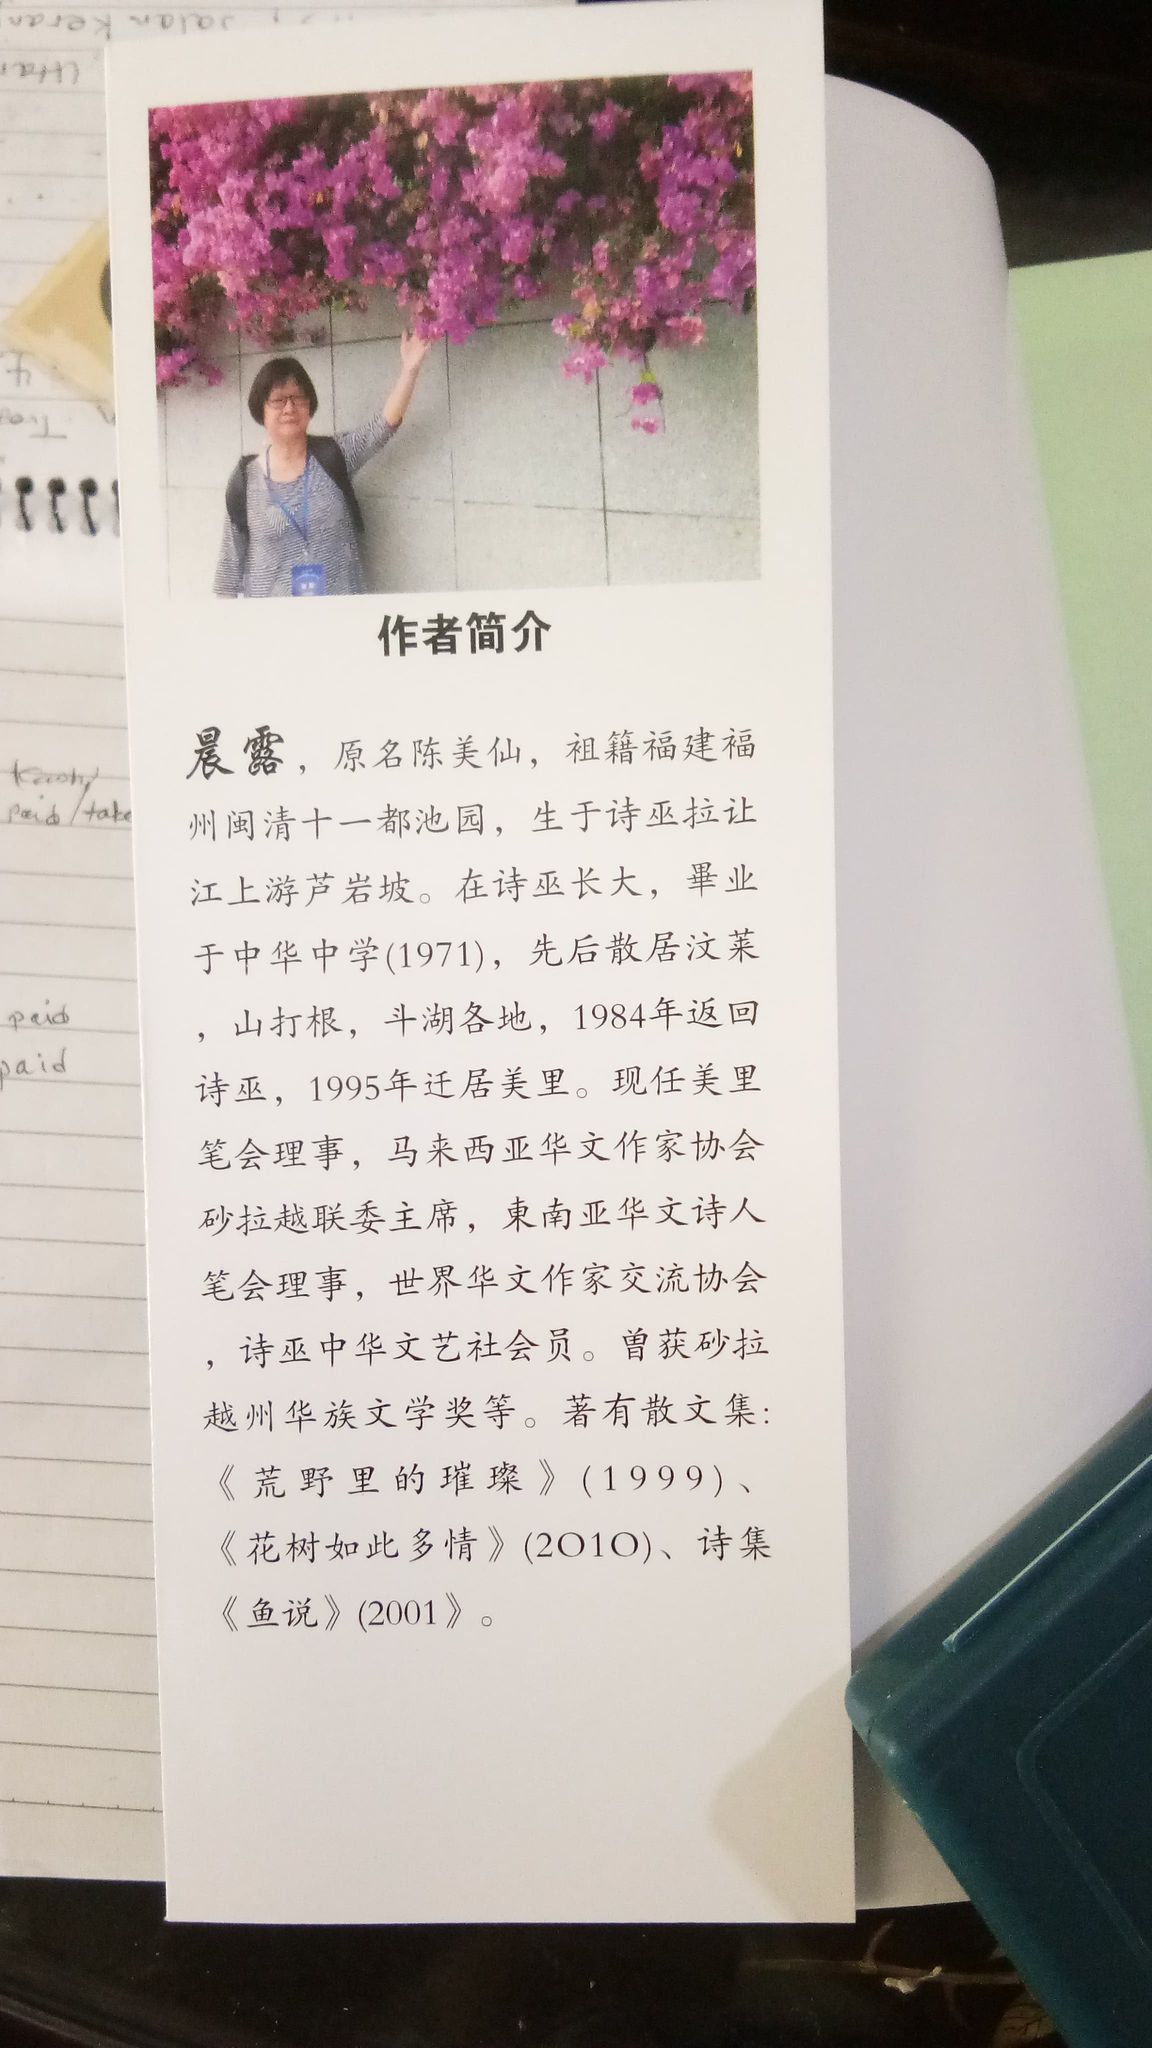 作者简介
晨露，原名陈美仙，祖籍福建福
州闽清十一都池园，生于诗巫拉让
江上游芦岩坡。在诗巫长大，畢业
于中华中学(1971)，先后散居汶莱
，山打根，斗湖各地，1984年返回
诗巫，1995年迁居美里。现任美里
笔会理事，马来西亚华文作家协会
砂拉越联委主席，東南亚华文诗人
笔会理事，世界华文作家交流协会
，诗巫中华文艺社会员。曾获砂拉
越州华族文学奖等。著有散文集:
《荒野里的璀璨》(1999)、
《花树如此多情》(2O1O)、诗集
《鱼说》(2001》。
paid/take
paid
paid